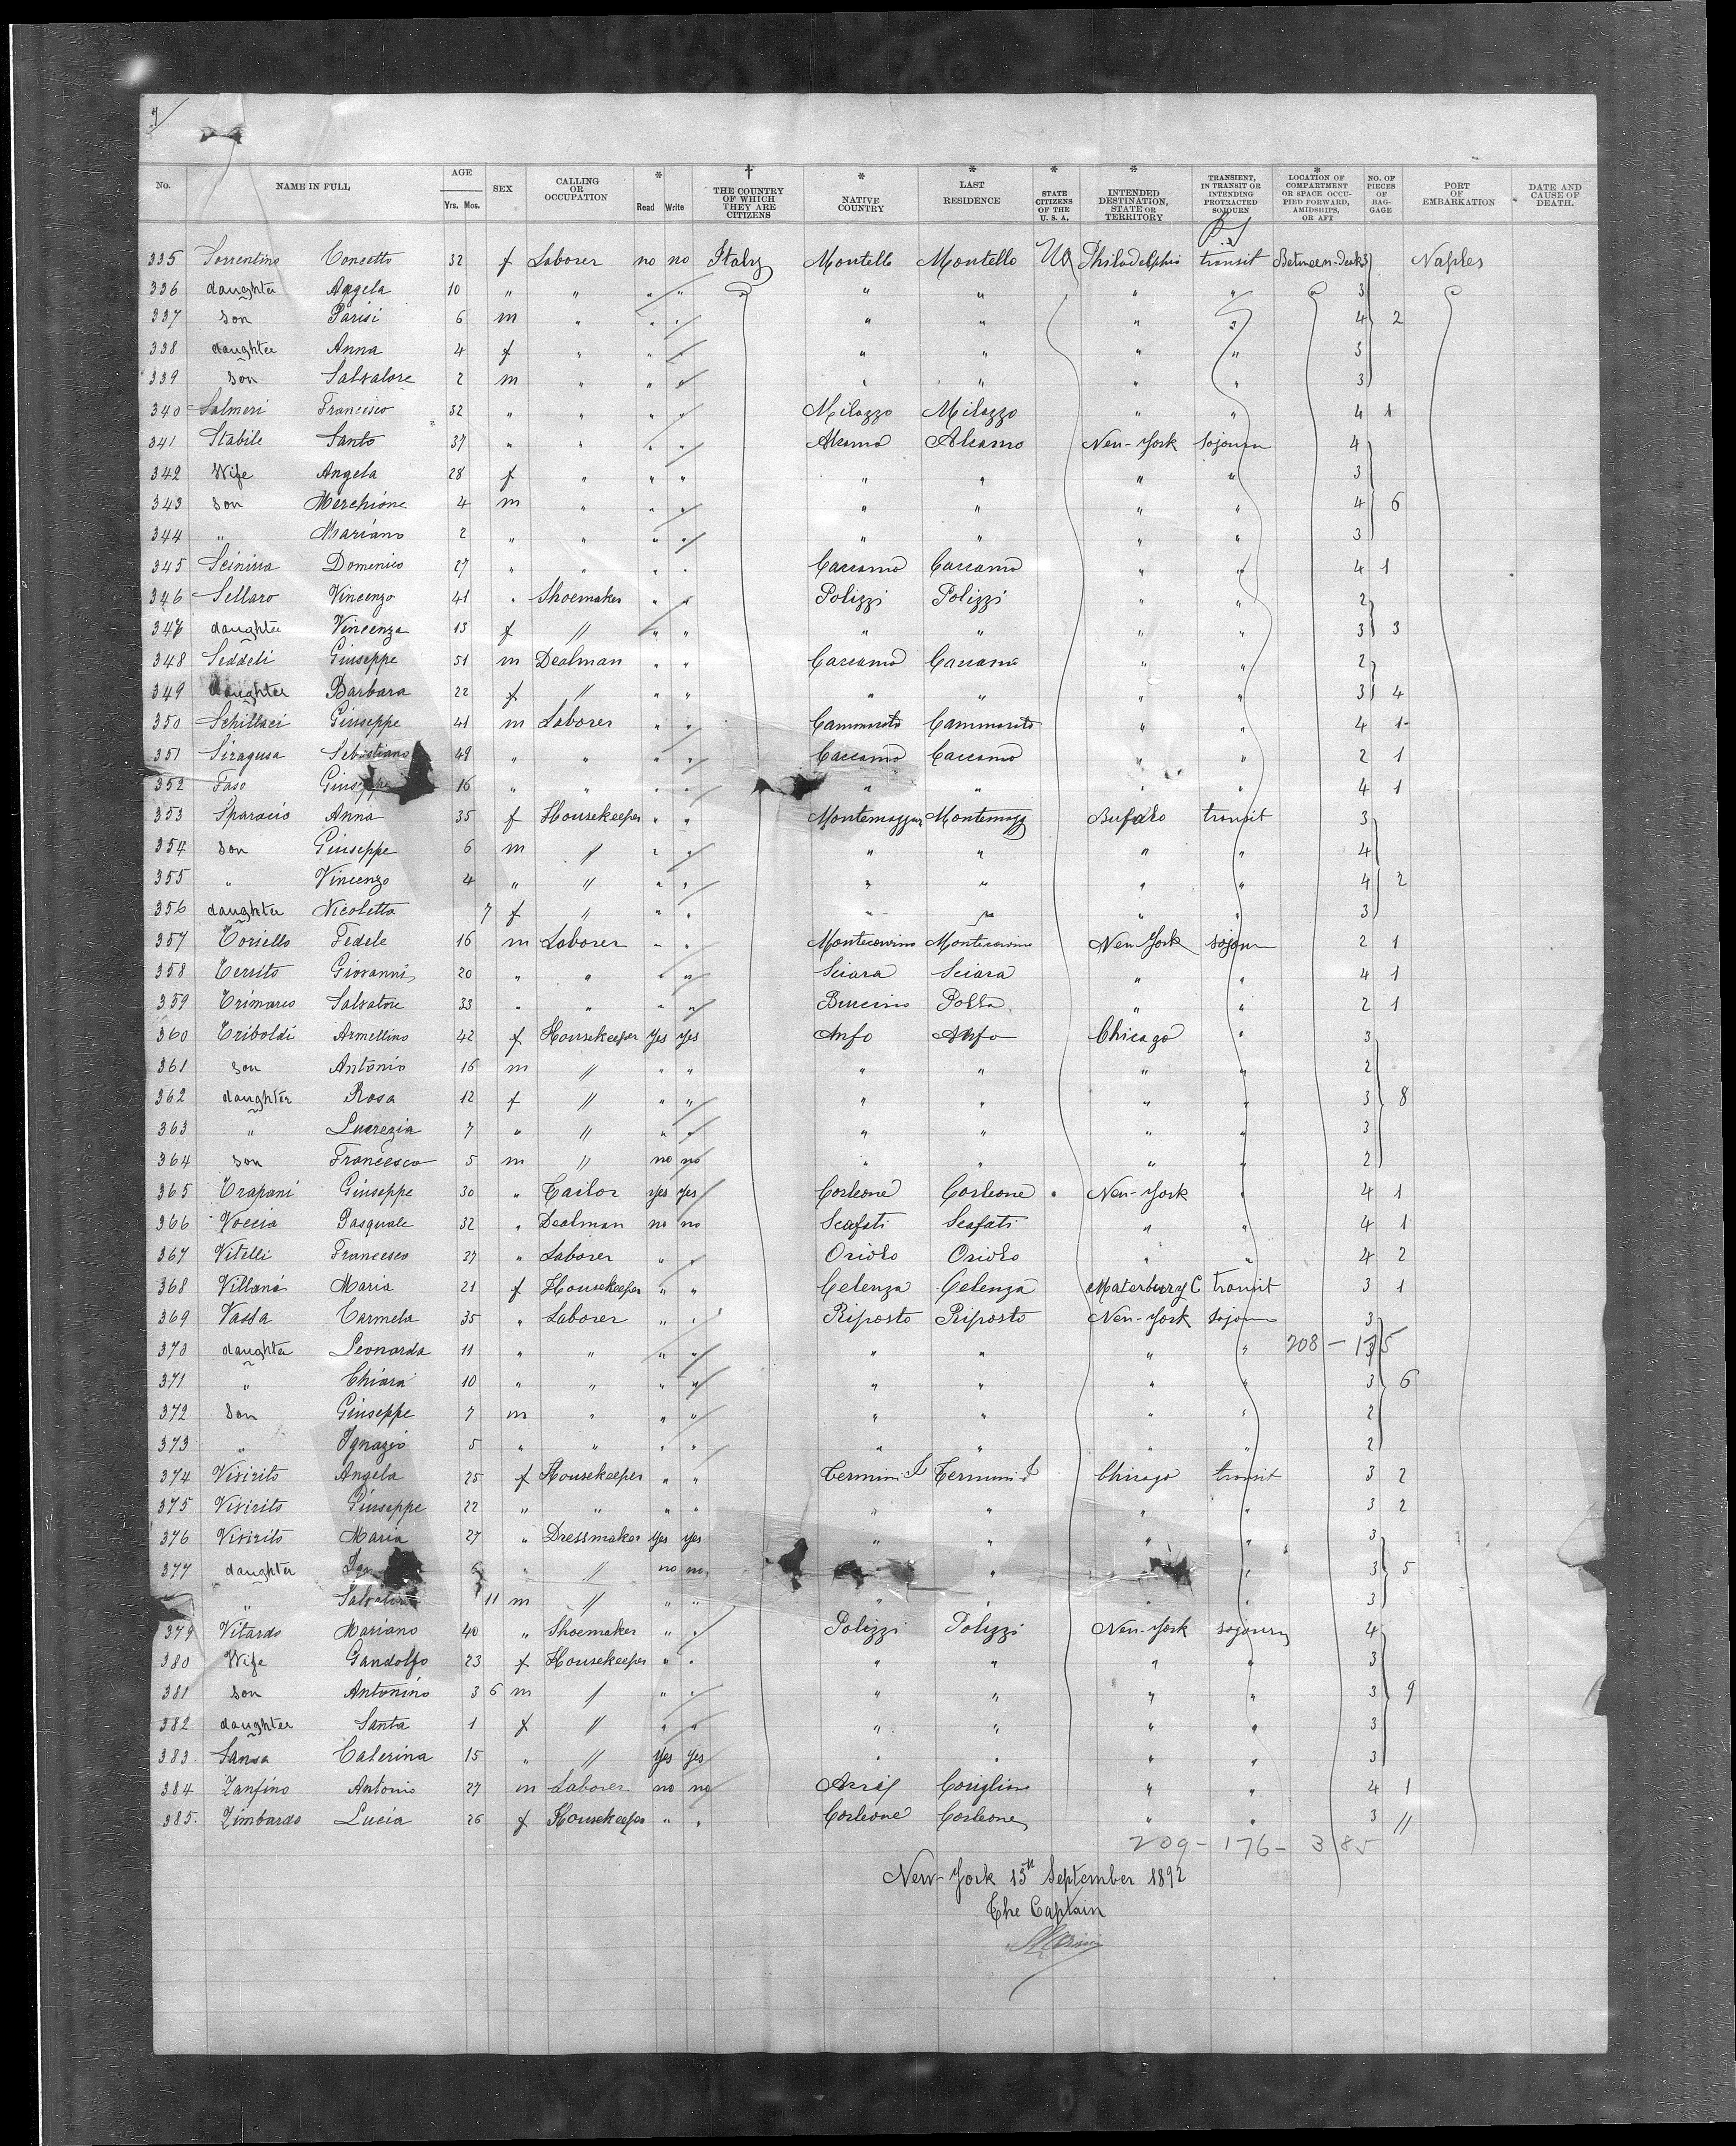 No. NAME IN FULL AGE Yrs. Mos. SEX CALLING OR OCCUPATION * Read Write † THE COUNTRY OF WHICH THEY ARE CITIZENS * NATIVE COUNTRY * LAST RESIDENCE * STATE CITIZENS OF THE U. S. A. * INTENDED DESTINATION, STATE OR TERRITORY TRANSIENT, IN TRANSIT OR INTENDING PROTRACTED SOJOURN * LOCATION OF COMPARTMENT OR SPACE OCCUPIED FORWARD, AMIDSHIPS, OR AFT NO. OF PIECES OF BAGGAGE PORT OF EMBARKATION DATE AND CAUSE OF DEATH.
335 Sorrentino Concetta 32 f Laborer no no Italy Montello Montello Philadelphia transit Between-decks 3 Naples
336 daughter Angela 10 " " " " " " " " 3
337 son Parisi 6 m " " " " " " " 4 2
338 daughter Anna 4 f " " " " " " " 3
339 son Salvatore 2 m " " " " " " " 3
340 Salmeri Francesco 32 " " " " Milazzo Milazzo " " 4 1
341 Stabile Santo 37 " " " " Alcamo Alcamo New-York sojourn 4
342 Wife Angela 28 f " " " " " " " 3
343 son Merchione 4 m " " " " " " " 4 6
344 " Mariano 2 " " " " " " " " 3
345 Domenico 27 " " " " Caccamo Caccamo " " 4 1
346 Sellaro Vincenzo 41 " Shoemaker " " Polizzi Polizzi " " 2
347 daughter Vincenza 13 f " " " " " " " 3 3
348 Seddeli Giuseppe 51 m Dealman " " Caccamo Caccamo " " 2
349 daughter Barbara 22 f " " " " " " " 3 4
350 Schillaci Giuseppe 41 m Laborer " " Cammarata Cammarata " " 4 1
351 Siragusa Sebastiano 49 " " " " Caccamo Caccamo " " 2 1
352 Faso Giuseppe 16 " " " " " " " " 4 1
353 Sparacio Anna 35 f Housekeeper " " Montemaggiore Montemagg Bufalo transit 3
354 son Giuseppe 6 m " " " " " " " 4
355 " Vincenzo 4 " " " " " " " " 4 2
356 daughter Nicoletta 7 f " " " " " " " 3
357 Toriello Fedele 16 m Laborer " " Montecorvino Montecorvino New York sojourn 2 1
358 Territo Giovanni 20 " " " " Sciara Sciara " " 4 1
359 Trimarco Salvatore 33 " " " " Buccino Polla " " 2 1
360 Triboldi Armellina 42 f Housekeeper Yes yes Anfo Anfo Chicago " 3
361 son Antonio 16 m " " " " " " " 2
362 daughter Rosa 12 f " " " " " " " 3 8
363 " Lucrezia 7 " " " " " " " " 3
364 son Francesco 5 m " no no " " " " 2
365 Trapani Giuseppe 30 " Tailor yes yes Corleone Corleone New-York " 4 1
366 Voccia Pasquale 32 " Dealman no no Scafati Scafati " " 4 1
367 Vitelli Francesco 37 " Laborer " " Oriolo Oriolo " " 4 2
368 Villanà Maria 21 f Housekeeper " " Celenza Celenza Materbury C transit 3 1
369 Vassa Carmela 35 " Laborer " " Riposto Riposto New-York sojourn 3
370 daughter Leonarda 11 " " " " " " " " 3 208 - 175
371 " Chiara 10 " " " " " " " " 3 6
372 son Giuseppe 7 m " " " " " " " 2
373 " Ignazio 5 " " " " " " " " 2
374 Vivirito Angela 25 f Housekeeper " " Termini I Termini I Chicago transit 3 2
375 Vivirito Giuseppe 22 " " " " " " " " 3 2
376 Vivirito Maria 27 " Dressmaker Yes yes " " " " 3
377 daughter 6 " " no no " " " 3 5
" 11 m " " " " " " " 3
379 Vitardo Mariano 40 " Shoemaker " " Polizzi Polizzi New-York sojourn 4
380 Wife Gandolfo 23 f Housekeeper " " " " " " 3
381 son Antonino 3 6 m " " " " " " " 3 9
382 daughter Santa 1 f " " " " " " " 3
383 Sansa Caterina 15 " " yes yes " " " " 3
384 Zanfino Antonio 27 m Laborer no no " " 4 1
385. Zimbardo Lucia 26 f Housekeeper " " Corleone Corleone " " 3 "
209 - 176 - 385
New-York 15th September 1892
The Captain